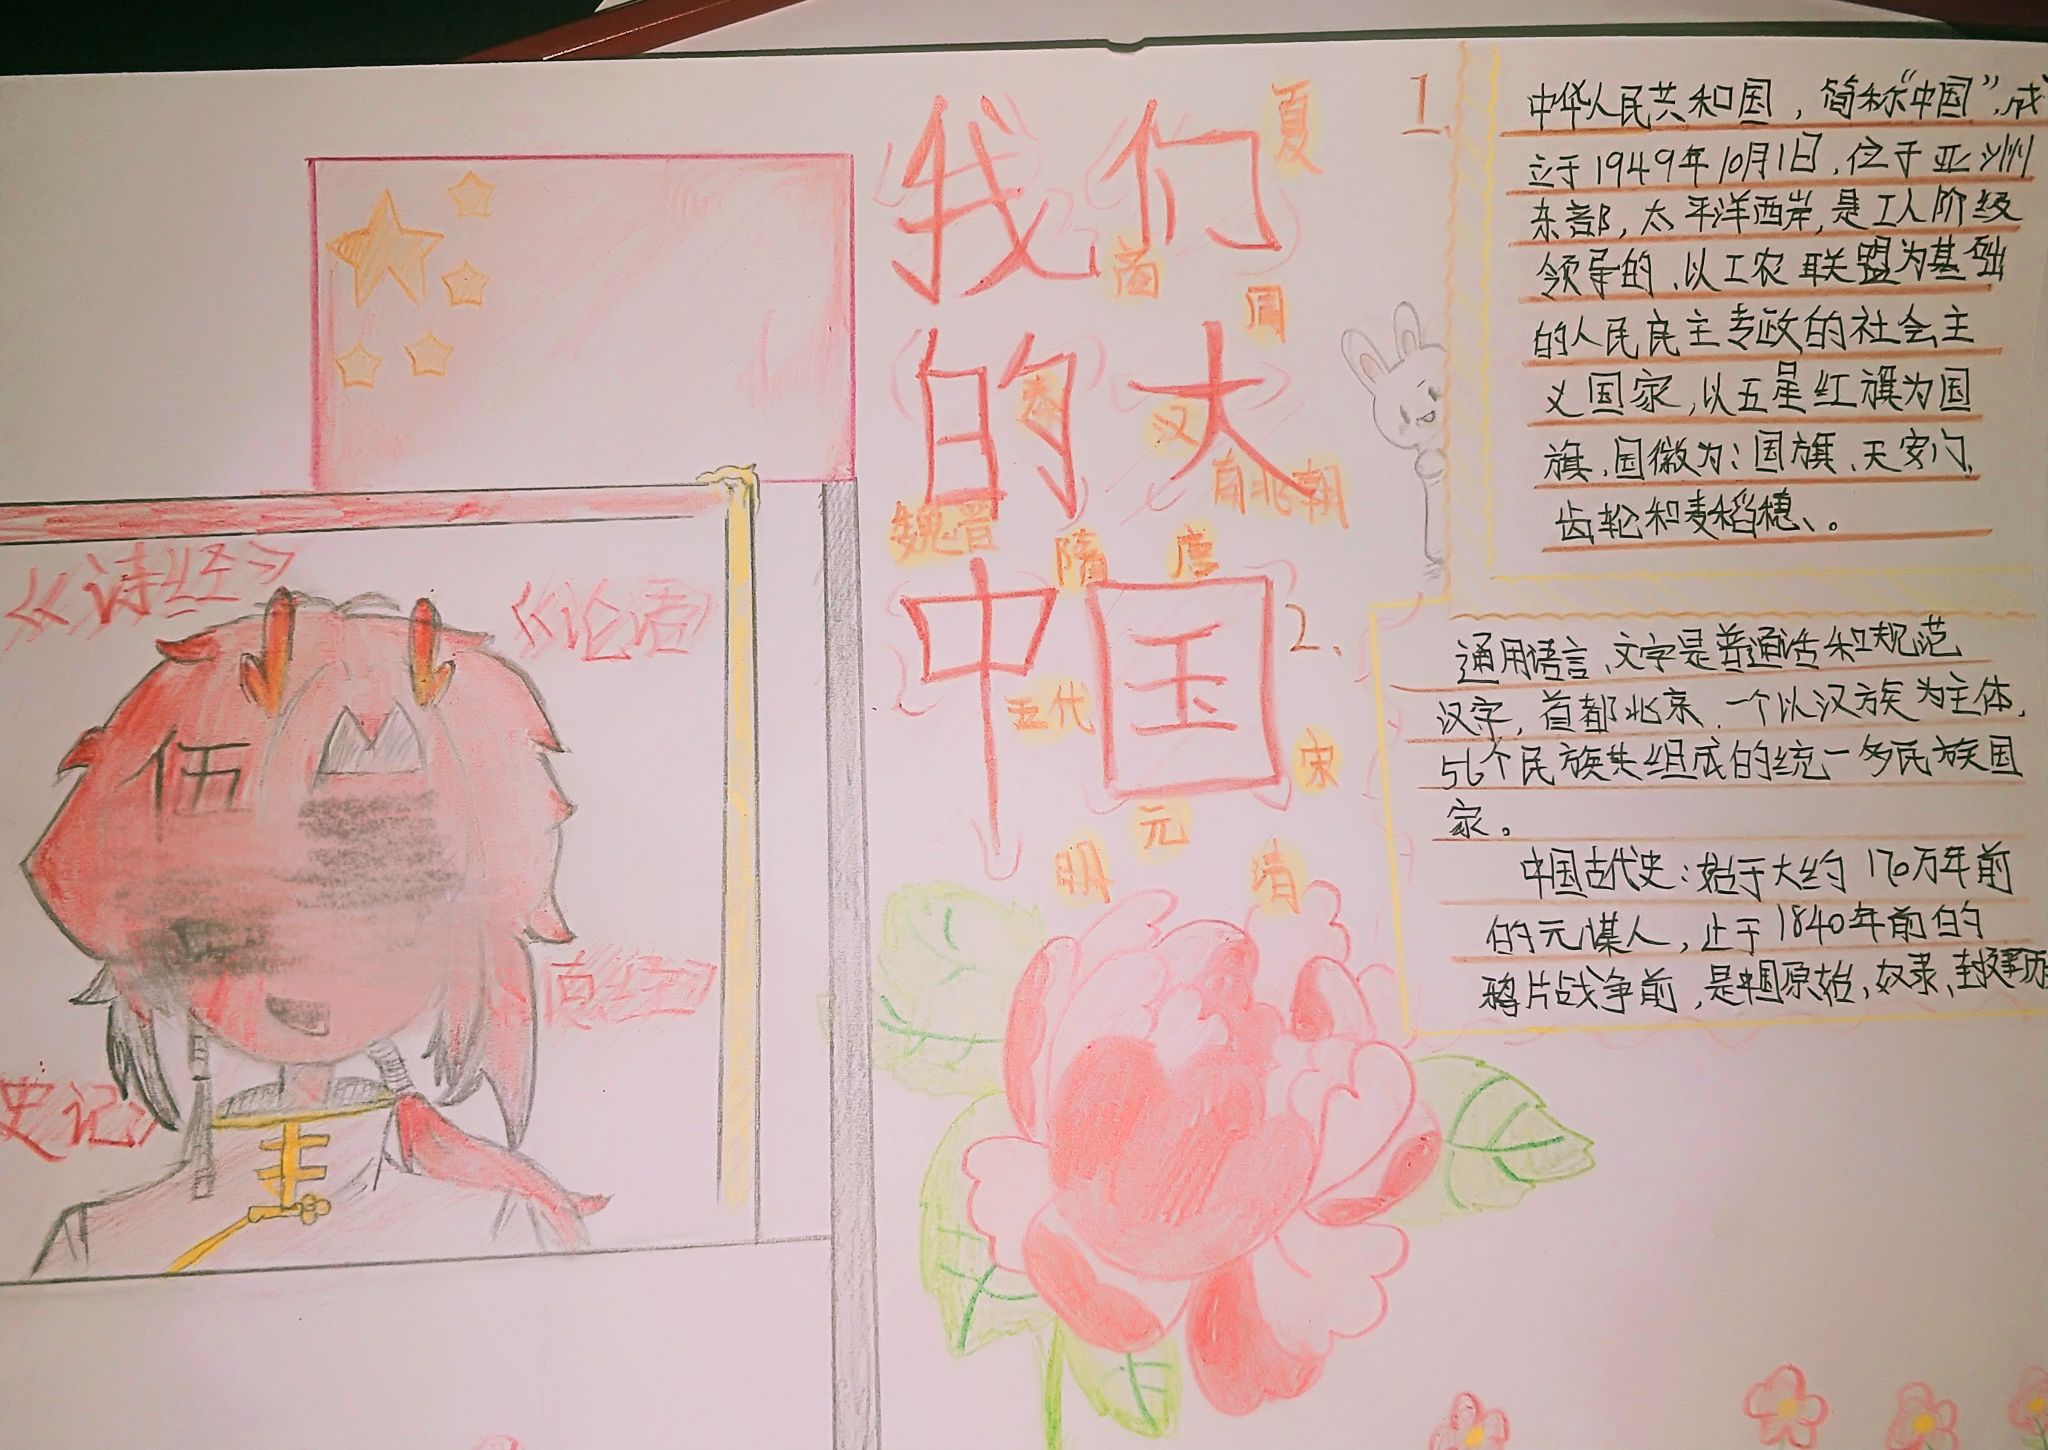 我们
的大
中国
夏
商
周
秦
汉
魏晋
南北朝
隋
唐
五代
宋
元
明
清
《诗经》
《论语》
伍
史记》
1.
中华人民共和国，简称“中国”，成
立于1949年10月1日，位于亚洲
东部，太平洋西岸，是工人阶级
领导的、以工农联盟为基础
的人民民主专政的社会主
义国家，以五星红旗为国
旗、国徽为：国旗、天安门、
齿轮和麦稻穗、。
2、
通用语言、文字是普通话和规范
汉字，首都北京，一个以汉族为主体，
56个民族共组成的统一多民族国
家。
中国古代史：始于大约170万年前
的元谋人，止于1840年前的
鸦片战争前，是中国原始，奴录、